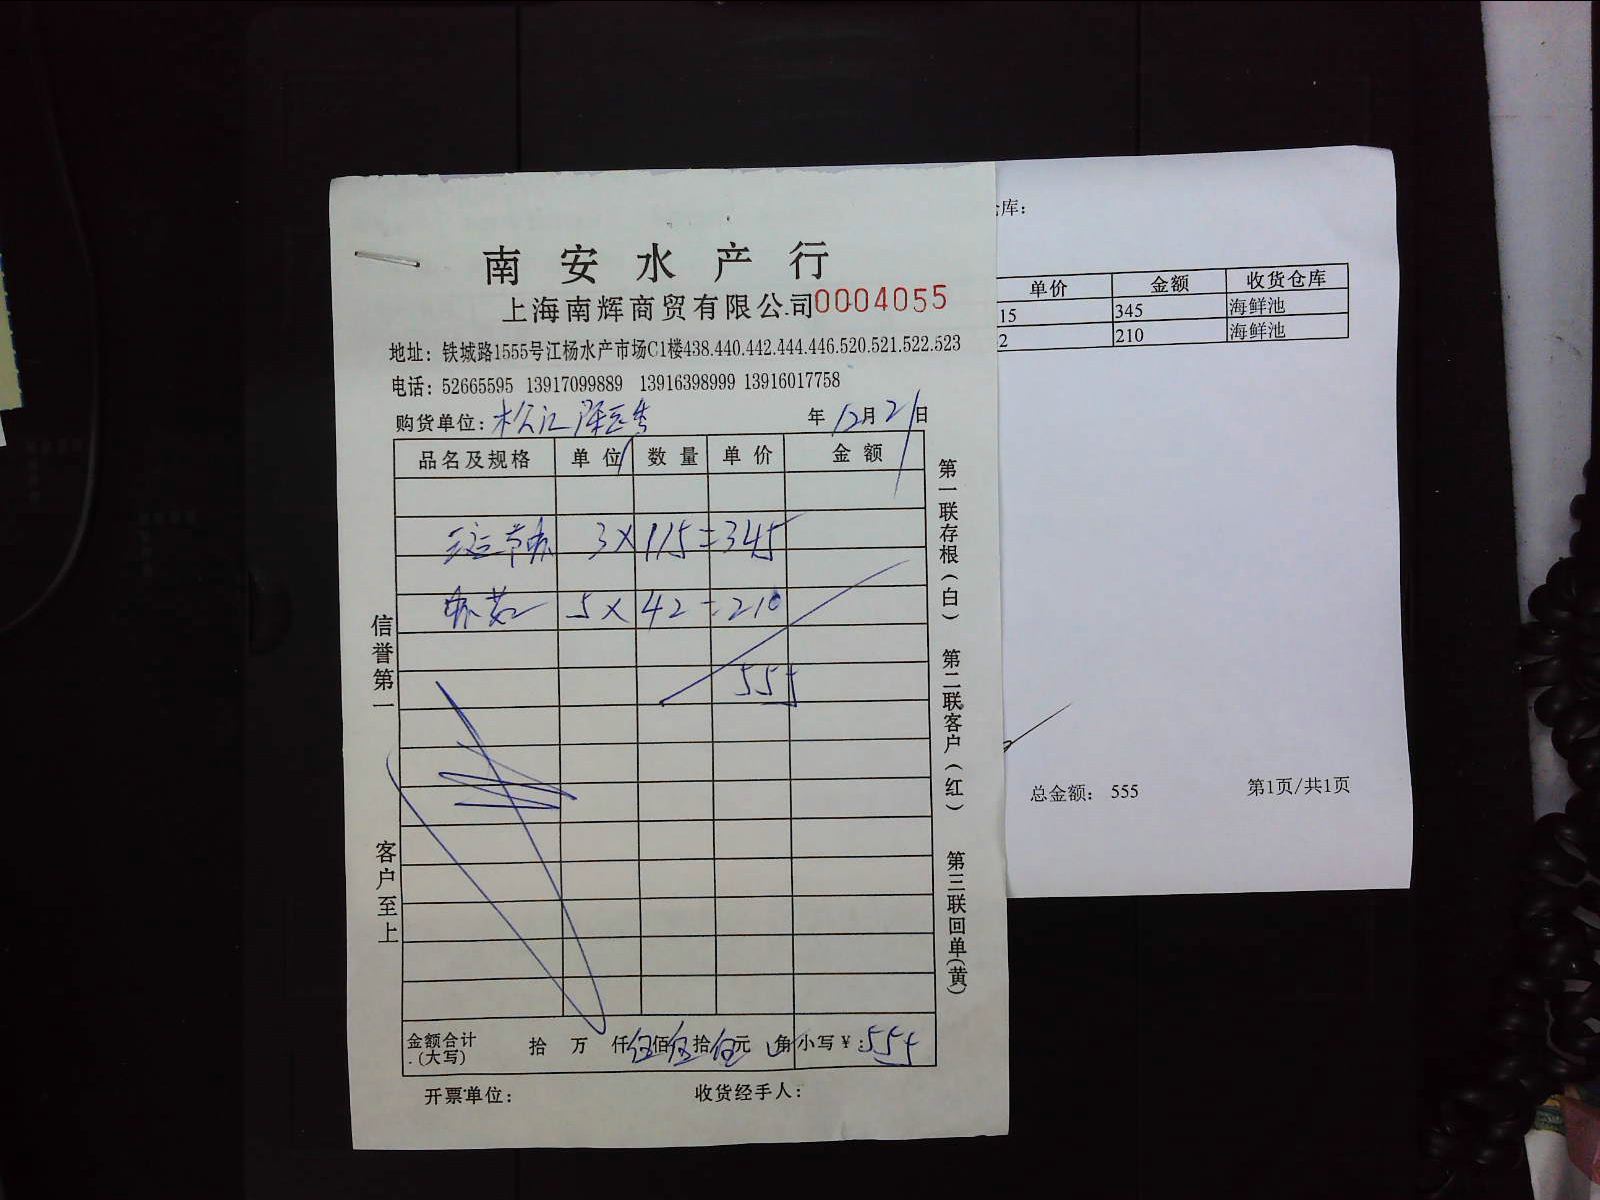 南安水产行
上海南辉商贸有限公司 0004055
地址：铁城路1555号江杨水产市场C1楼438.440.442.444.446.520.521.522.523
电话：52665595 13917099889 13916398999 13916017758
购货单位：松江 年12月21日
品名及规格 单位 数量 单价 金额
3×115=345
5×42=210
555
金额合计(大写) 拾 万 仟伍佰伍拾伍元 角 小写￥：555
开票单位： 收货经手人：
信誉第一
客户至上
第一联存根(白)
第二联客户(红)
第三联回单(黄)
库：
单价 金额 收货仓库
15 345 海鲜池
2 210 海鲜池
总金额： 555 第1页/共1页